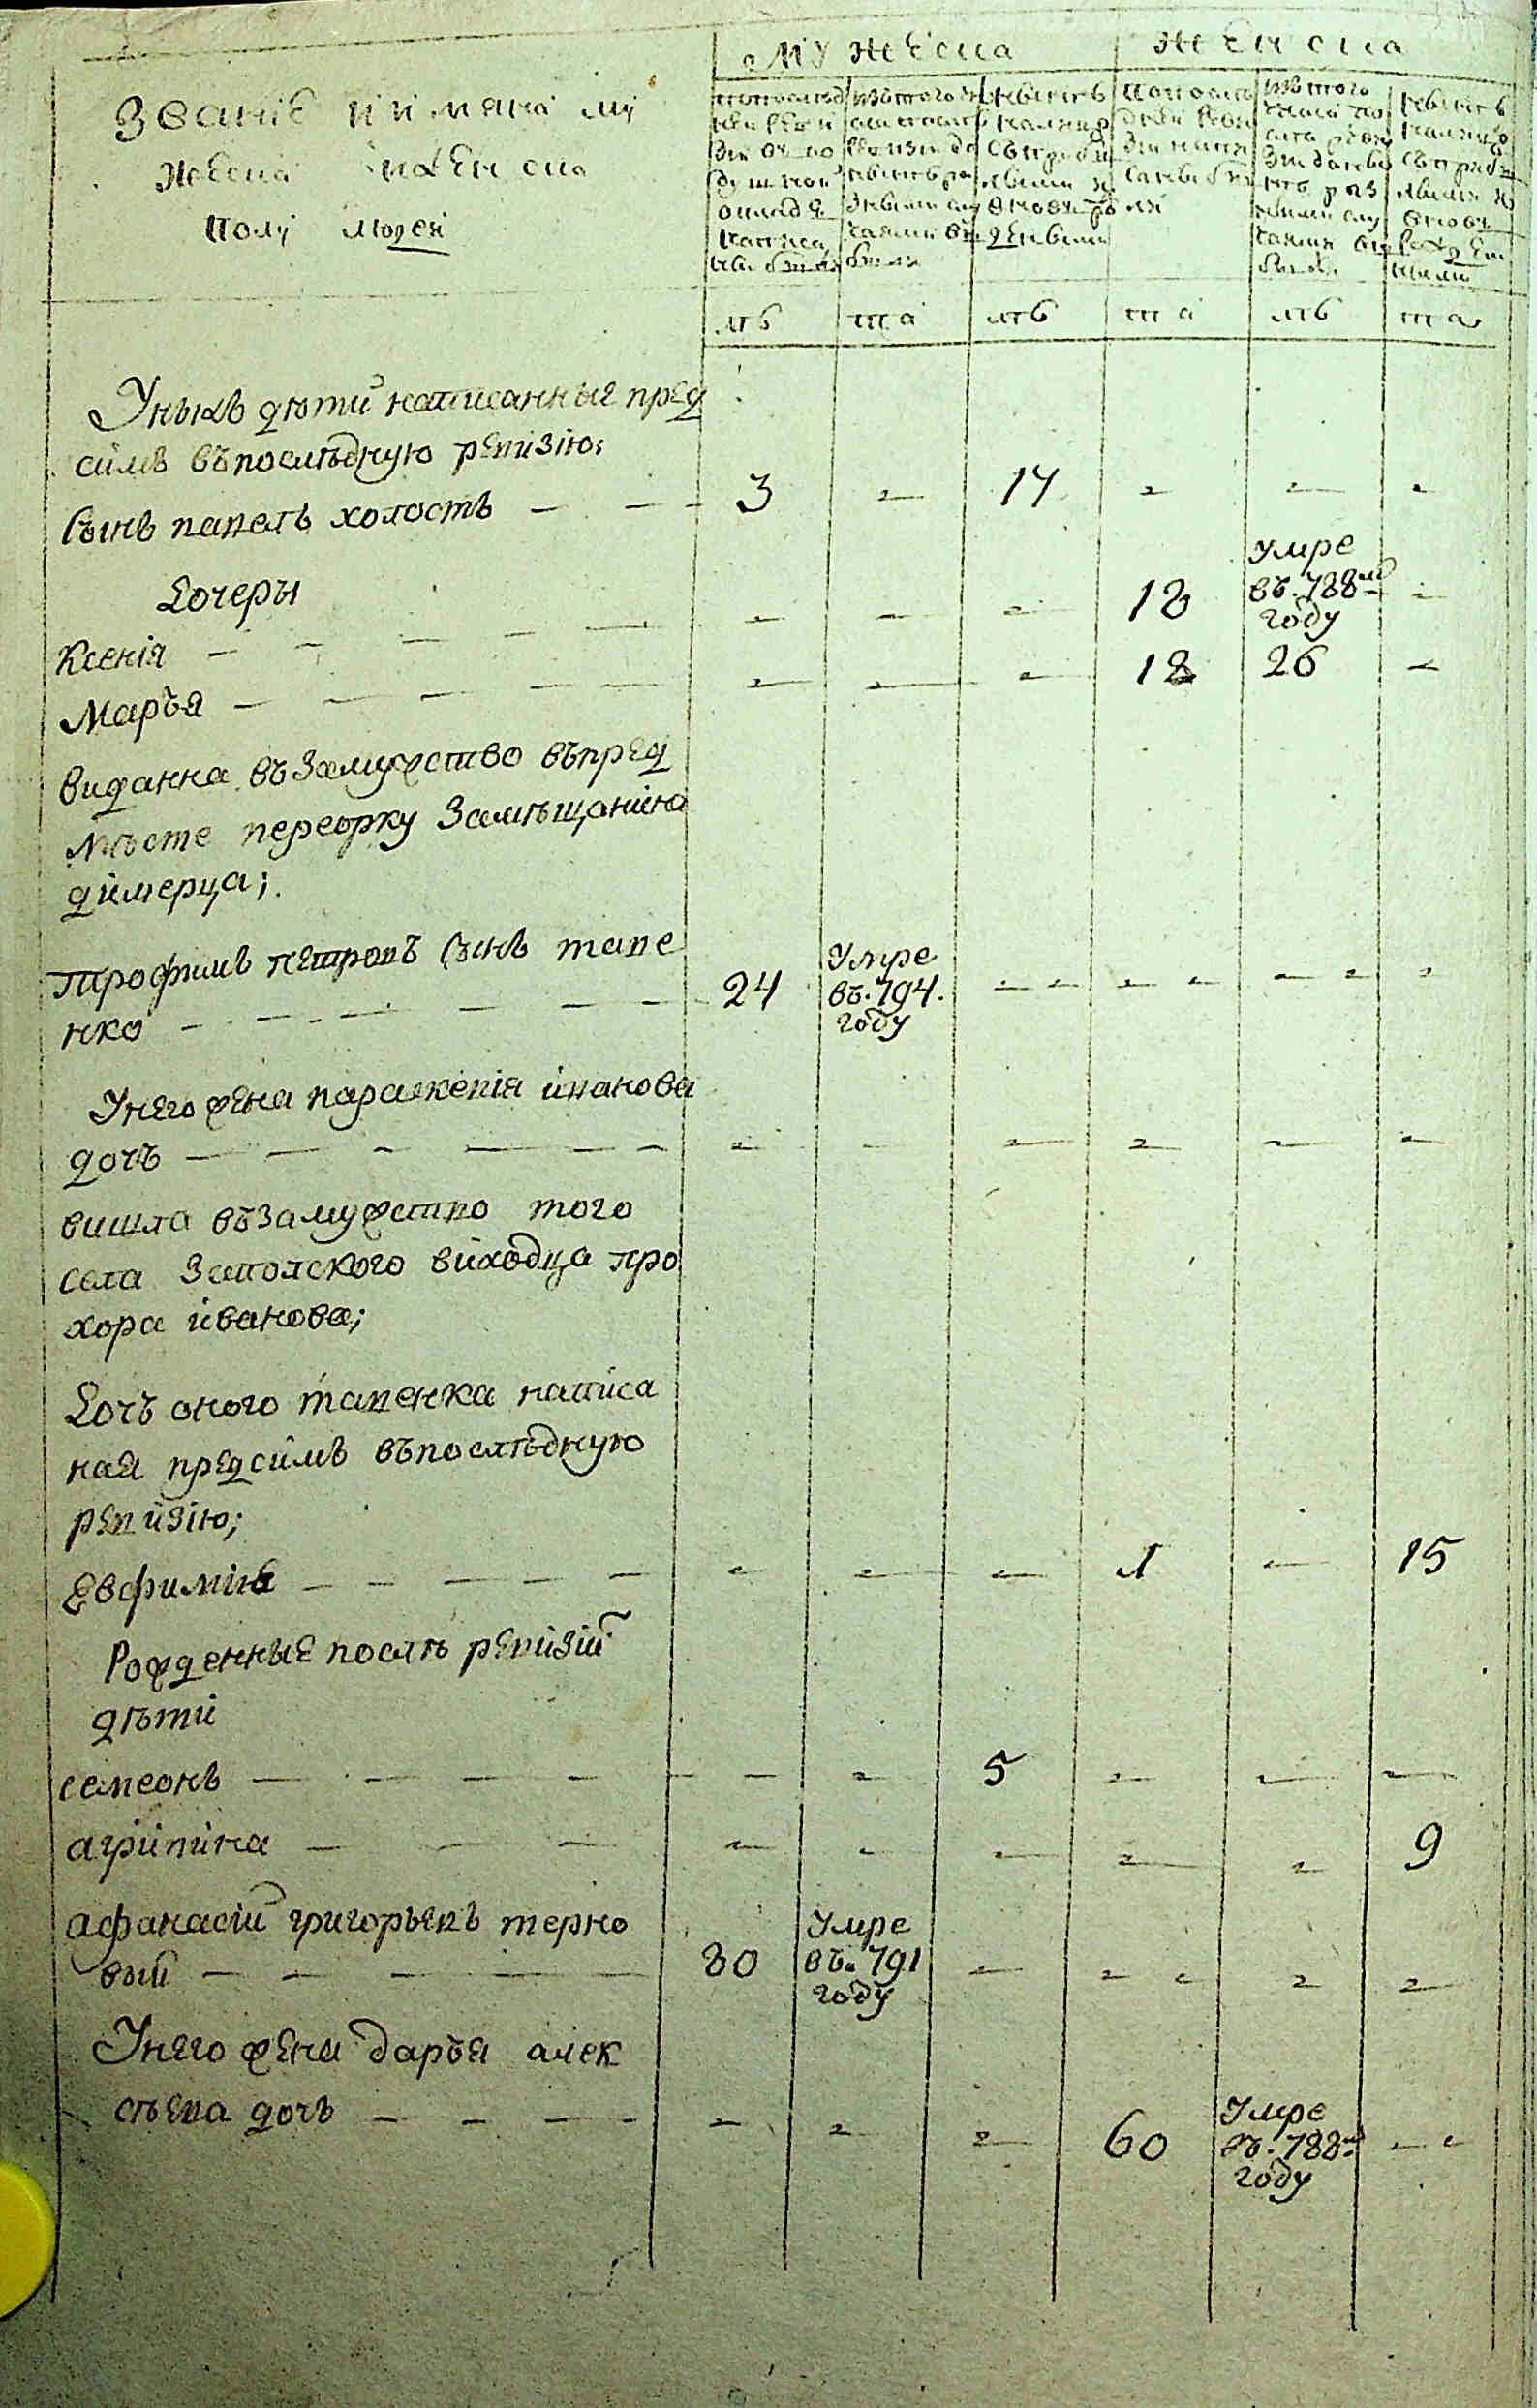 мужеска женска
Званіе и имяна му
жеска и женска
полу людей
лѣ та лѣ та лѣ та
У ныхъ дѣти написанные пред
симъ въ послѣдную ревизію:
Сынъ павелъ холостъ 3 17
Дочеры
Ксенія 18 умре въ 788м году
Маръя 18 26
видання въ замужство въ пред
мѣсте переорку за мѣщанина
димерца;
Трофимъ петровъ сынъ тапе
нко 24 Умре въ 794. году
У него жена параскевія иванова
дочъ
вишла въ замужство того
села за полского виходца про
хора иванова;
Дочъ оного тапенка написа
ная пред симъ въ послѣдную
ревизію;
Евфимія 1 15
Рожденные послѣ ревизій
дѣти
семеонъ 5
агрипина 9
афанасій григорьевъ терно
вый 80 Умре въ 791 году
У него жена даръя алек
сѣева дочъ 60 Умре въ 788м году